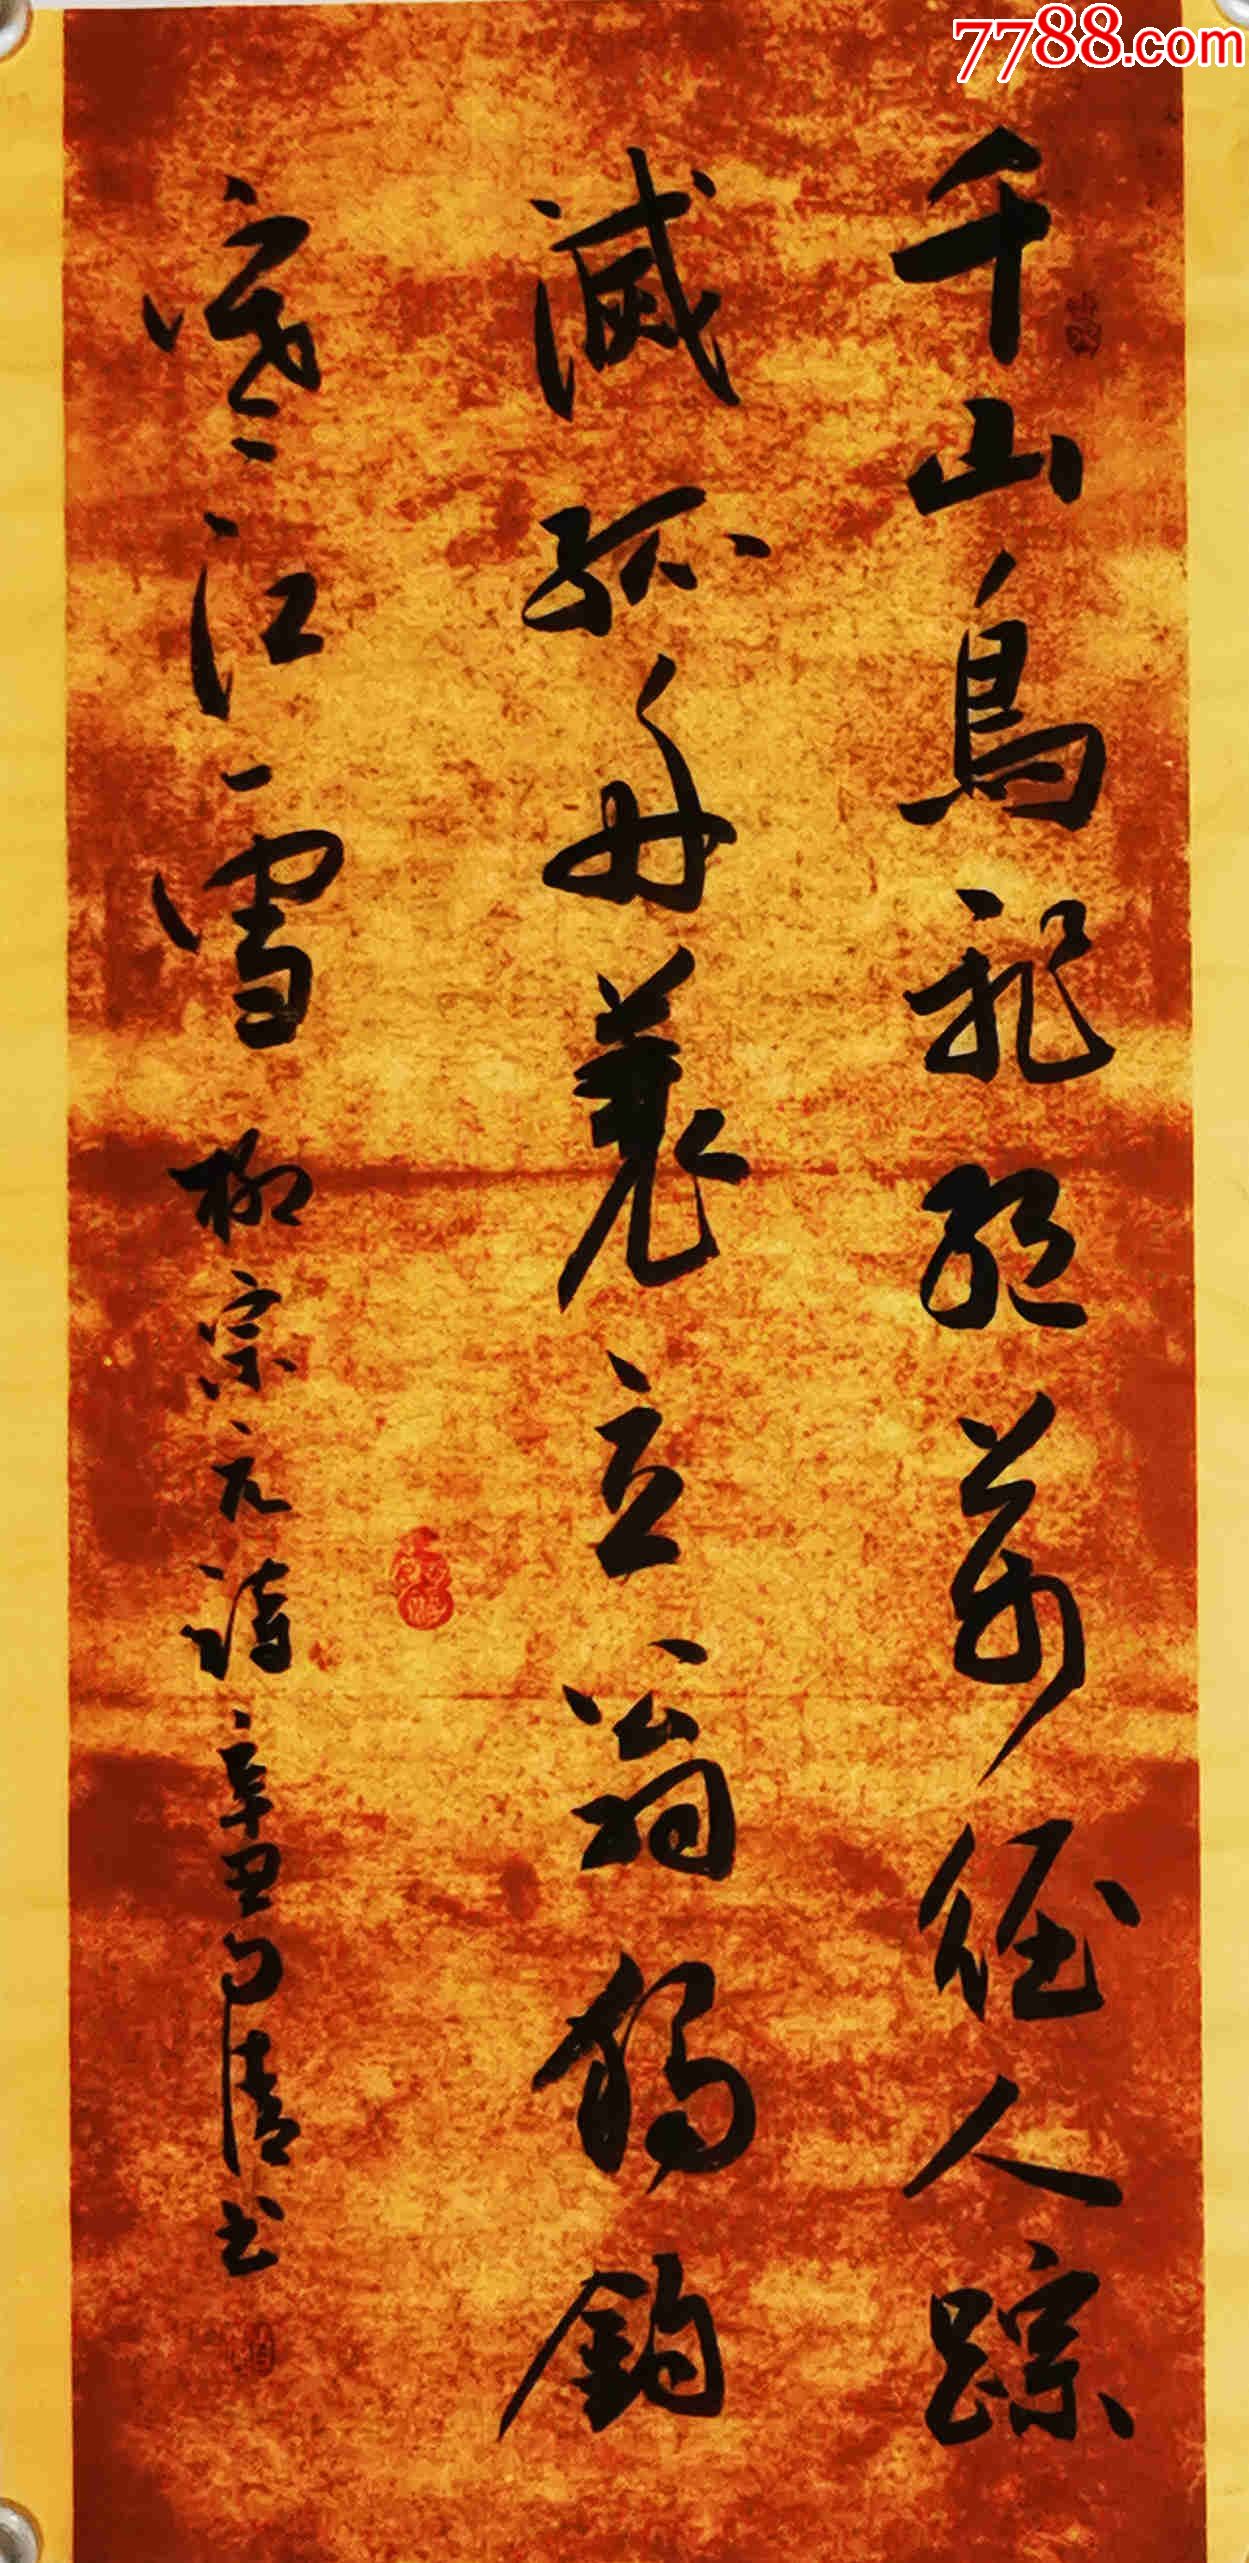 7788.com
千山鳥飛絕萬徑人踪
滅孤舟蓑立翁獨釣
寒江雪 柳宗元詩 辛丑 清书